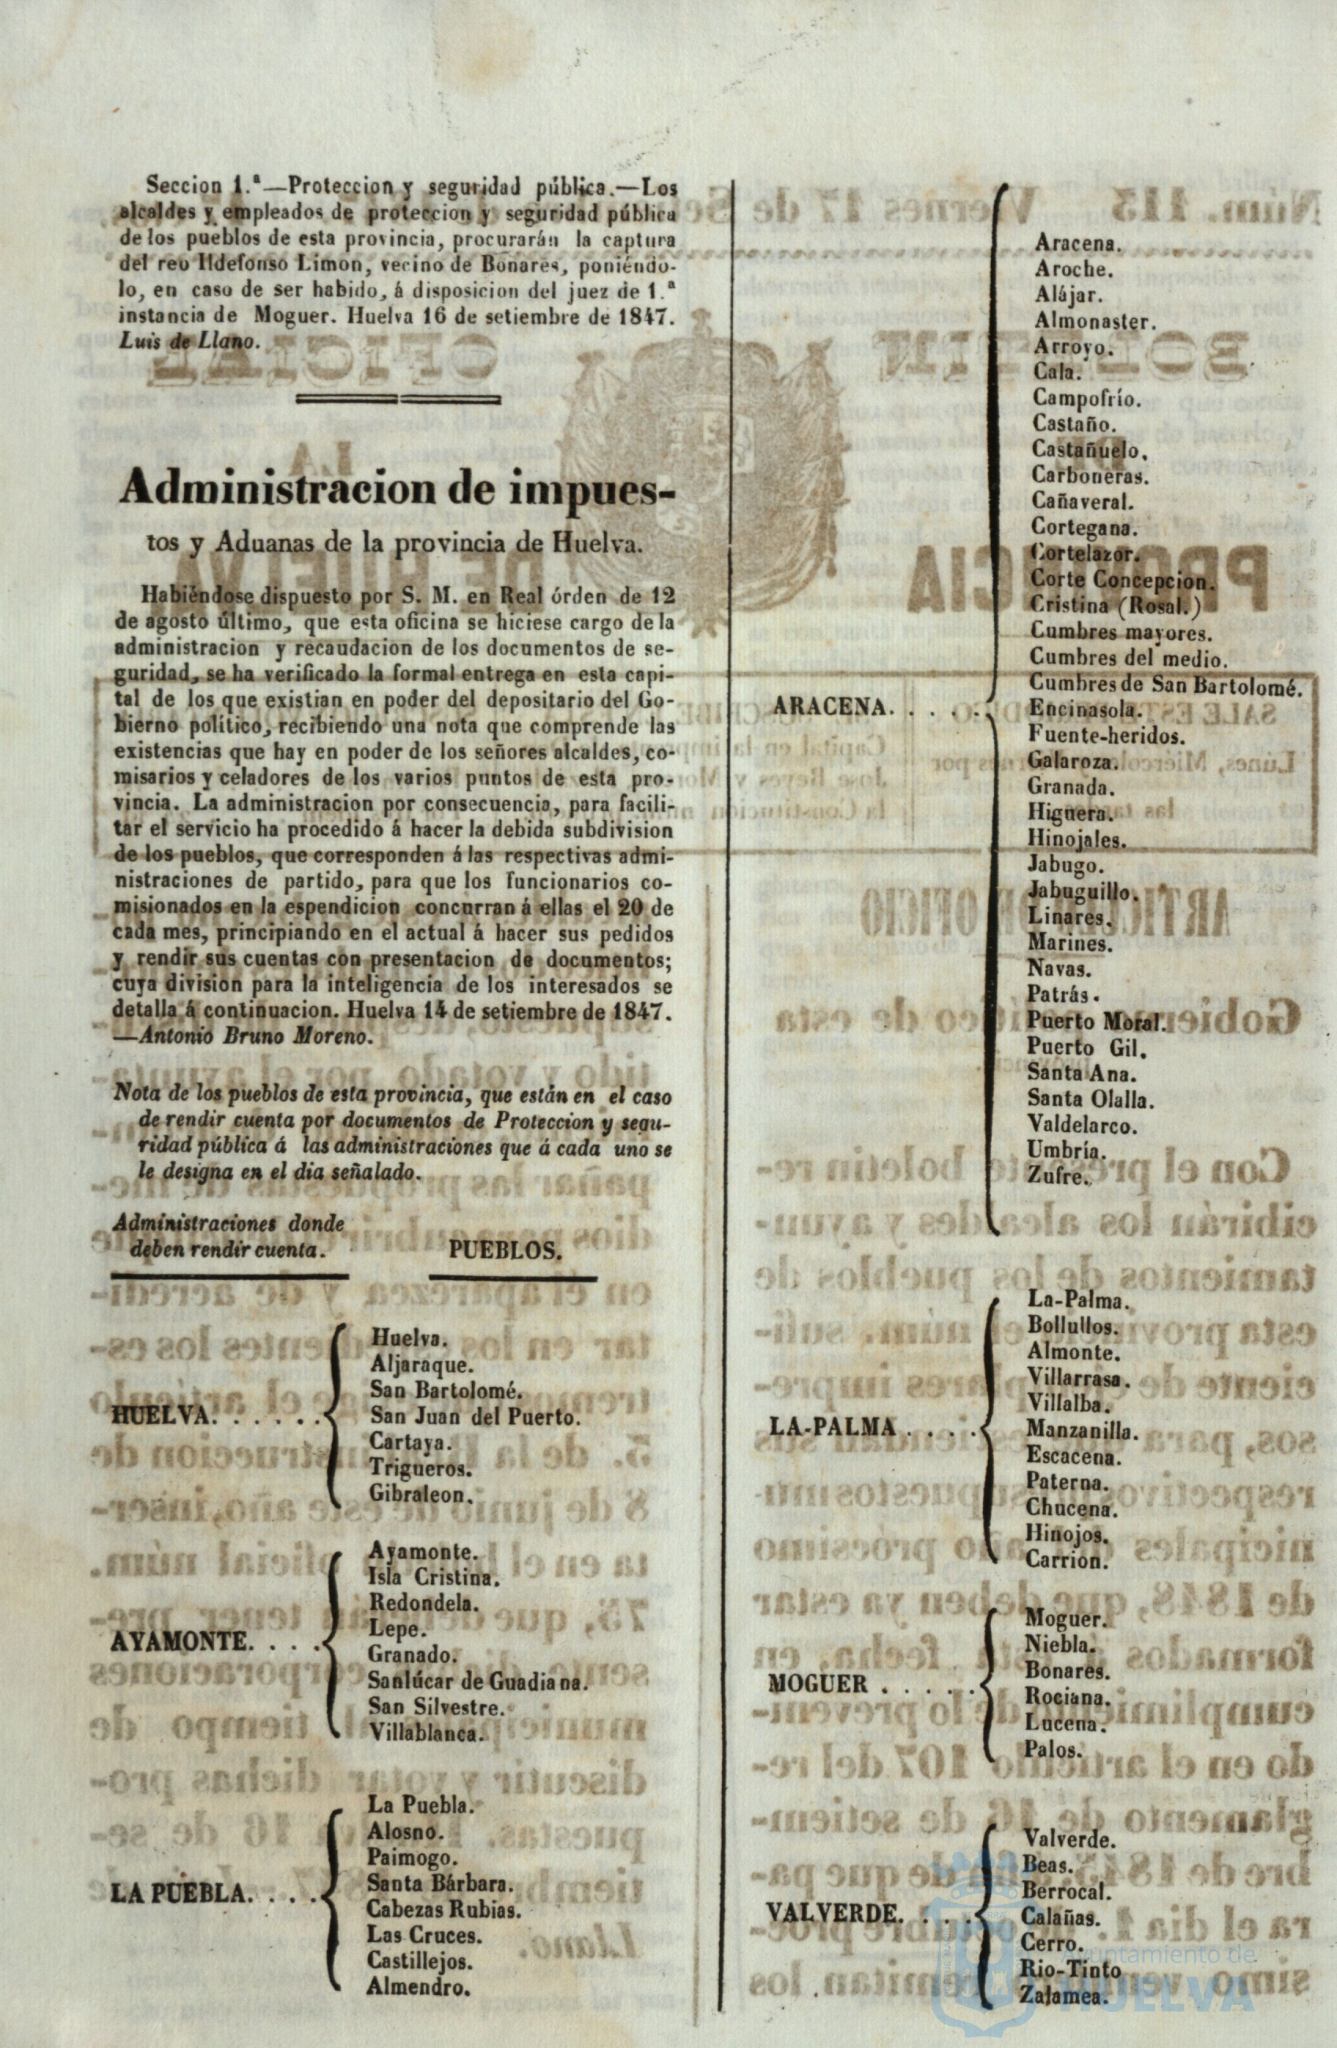 Seccion 1.ª—Proteccion y seguridad pública.—Los
alcaldes y empleados de proteccion y seguridad pública
de los pueblos de esta provincia, procurarán la captura
del reo Ildefonso Limon, vecino de Bonares, poniéndo-
lo, en caso de ser habido, á disposicion del juez de 1.ª
instancia de Moguer. Huelva 16 de setiembre de 1847.
Luis de Llano.
Administracion de impues-
tos y Aduanas de la provincia de Huelva.
Habiéndose dispuesto por S. M. en Real órden de 12
de agosto último, que esta oficina se hiciese cargo de la
administracion y recaudacion de los documentos de se-
guridad, se ha verificado la formal entrega en esta capi-
tal de los que existian en poder del depositario del Go-
bierno político, recibiendo una nota que comprende las
existencias que hay en poder de los señores alcaldes, co-
misarios y celadores de los varios puntos de esta pro-
vincia. La administracion por consecuencia, para facili-
tar el servicio ha procedido á hacer la debida subdivision
de los pueblos, que corresponden á las respectivas admi-
nistraciones de partido, para que los funcionarios co-
misionados en la espendicion concurran á ellas el 20 de
cada mes, principiando en el actual á hacer sus pedidos
y rendir sus cuentas con presentacion de documentos;
cuya division para la inteligencia de los interesados se
detalla á continuacion. Huelva 14 de setiembre de 1847.
—Antonio Bruno Moreno.
Nota de los pueblos de esta provincia, que están en el caso
de rendir cuenta por documentos de Proteccion y segu-
ridad pública á las administraciones que á cada uno se
le designa en el dia señalado.
Administraciones donde
deben rendir cuenta.
PUEBLOS.
HUELVA. . . . . .
Huelva.
Aljaraque.
San Bartolomé.
San Juan del Puerto.
Cartaya.
Trigueros.
Gibraleon.
AYAMONTE. . . .
Ayamonte.
Isla Cristina.
Redondela.
Lepe.
Granado.
Sanlúcar de Guadiana.
San Silvestre.
Villablanca.
LA PUEBLA. . . .
La Puebla.
Alosno.
Paimogo.
Santa Bárbara.
Cabezas Rubias.
Las Cruces.
Castillejos.
Almendro.
ARACENA. . . . .
Aracena.
Aroche.
Alájar.
Almonaster.
Arroyo.
Cala.
Campofrío.
Castaño.
Castañuelo.
Carboneras.
Cañaveral.
Cortegana.
Cortelazor.
Corte Concepcion.
Cristina (Rosal.)
Cumbres mayores.
Cumbres del medio.
Cumbres de San Bartolomé.
Encinasola.
Fuente-heridos.
Galaroza.
Granada.
Higuera.
Hinojales.
Jabugo.
Jabuguillo.
Linares.
Marines.
Navas.
Patrás.
Puerto Moral.
Puerto Gil.
Santa Ana.
Santa Olalla.
Valdelarco.
Umbría.
Zufre.
LA-PALMA . . . .
La-Palma.
Bollullos.
Almonte.
Villarrasa.
Villalba.
Manzanilla.
Escacena.
Paterna.
Chucena.
Hinojos.
Carrion.
MOGUER . . . . .
Moguer.
Niebla.
Bonares.
Rociana.
Lucena.
Palos.
VALVERDE. . . .
Valverde.
Beas.
Berrocal.
Calañas.
Cerro.
Rio-Tinto
Zalamea.
Ayuntamiento de
HUELVA